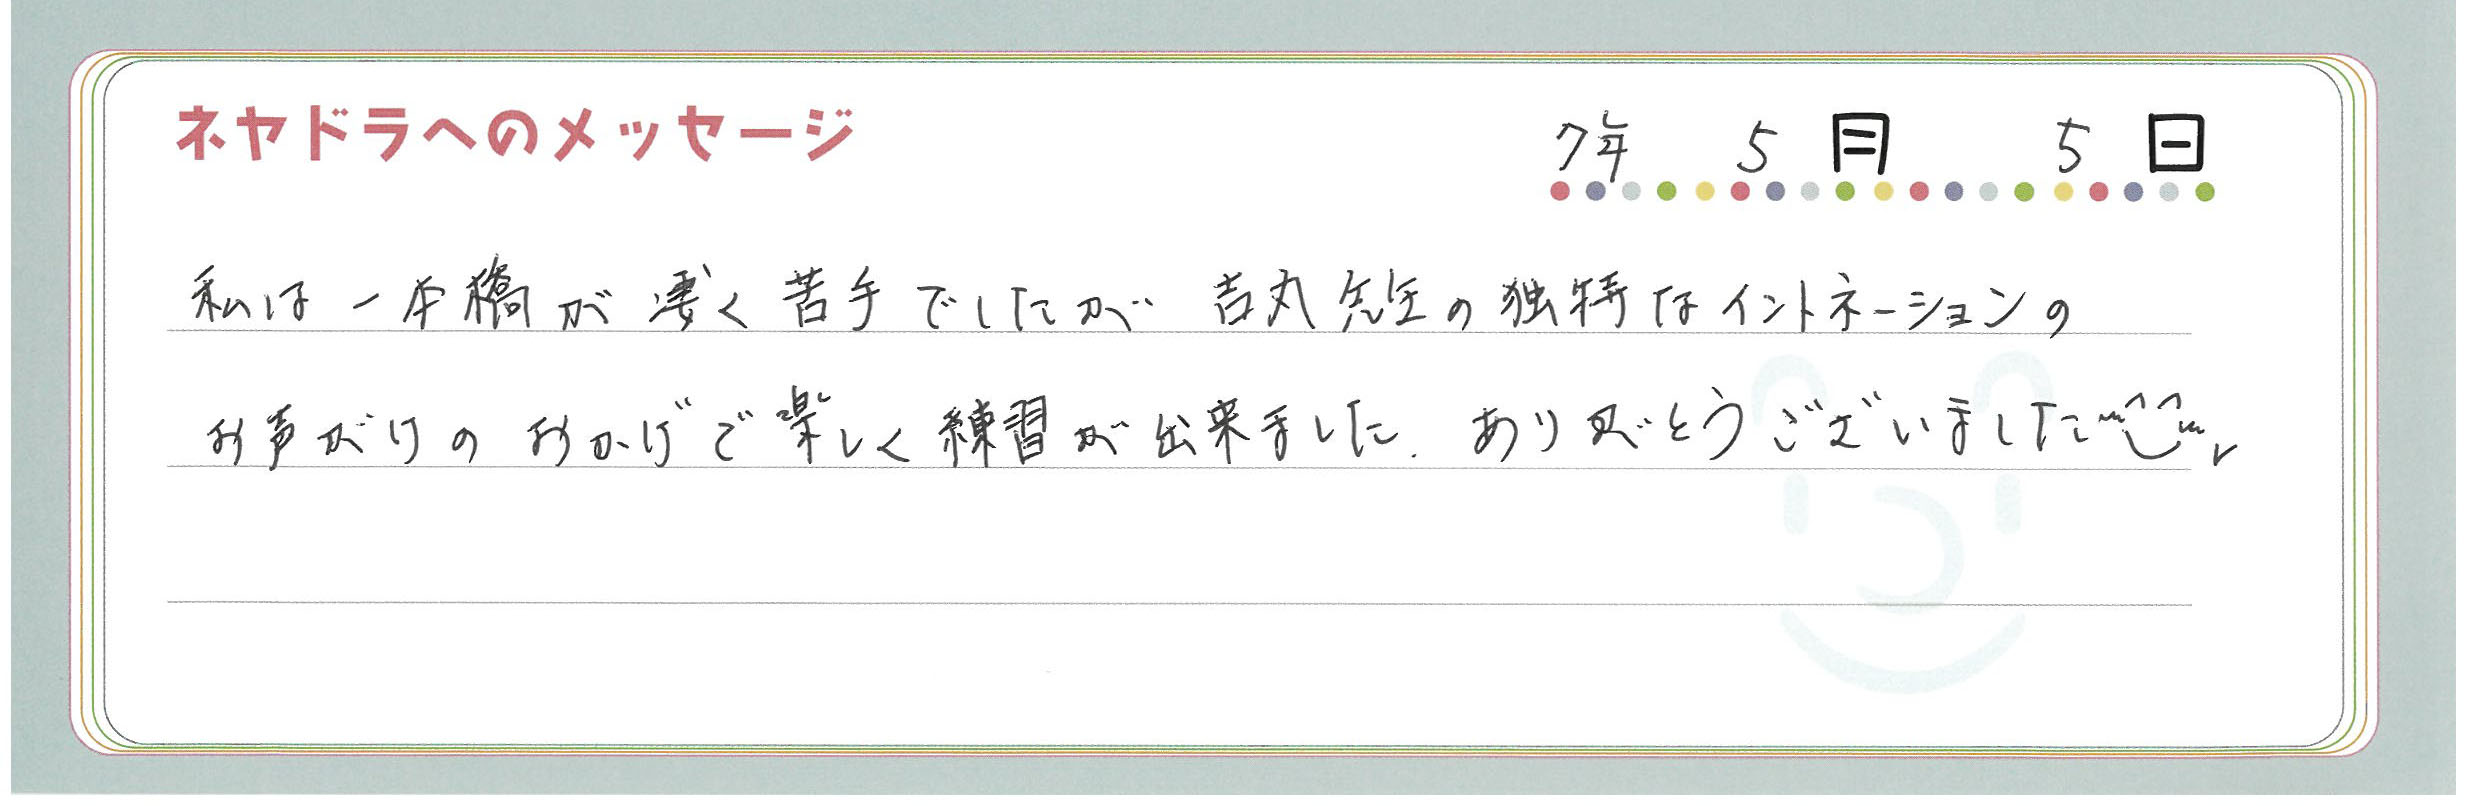 ネヤドラへのメッセージ
7年 5月 5日
私は一本橋が凄く苦手でしたが 吉丸先生の独特なイントネーションの
お声がけのおかげで楽しく練習が出来ました。ありがとうございました